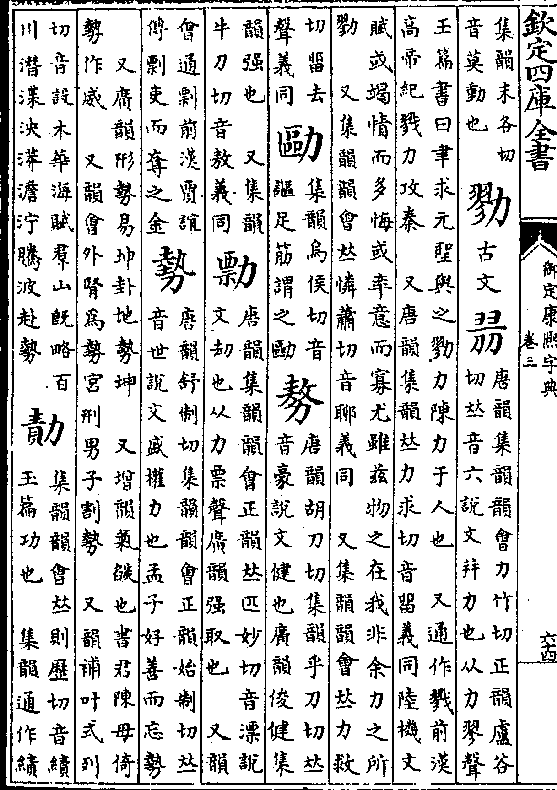 欽定四庫全書
御定康熙字典
卷三
六十四
集韻末各切
音莫動也
勠
古文
唐韻集韻韻會力竹切正韻盧谷
切𠀤音六說文并力也从力翏聲
玉篇書曰聿求元聖與之勠力陳力于人也　又通作戮前漢
高帝紀戮力攻秦　又唐韻集韻𠀤力求切音畱義同陸機文
賦或竭情而多悔或率意而寡尤雖茲物之在我非余力之所
勠　又集韻韻會𠀤憐蕭切音聊義同　又集韻韻會𠀤力救
切畱去
聲義同
集韻烏侯切音
謳足筋謂之
𠢕
唐韻胡刀切集韻乎刀切𠀤
音豪說文健也廣韻俊健集
韻强也　又集韻
牛刀切音敖義同
勡
唐韻集韻韻會正韻𠀤匹妙切音漂說
文刼也从力票聲廣韻强取也　又韻
會通剽前漢賈誼
傅剽吏而奪之金
勢
唐韻舒制切集韻韻會正韻始制切𠀤
音世說文盛權力也孟子好善而忘勢
又廣韻形勢易坤卦地勢坤　又增韻氣燄也書君陳毋倚
勢作威　又韻會外腎為勢宮刑男子割勢　又韻補叶式列
切音設木華海賦羣山旣略百
川潛渫泱漭澹濘騰波赴勢
勣
集韻韻會𠀤則歷切音績
玉篇功也　集韻通作績